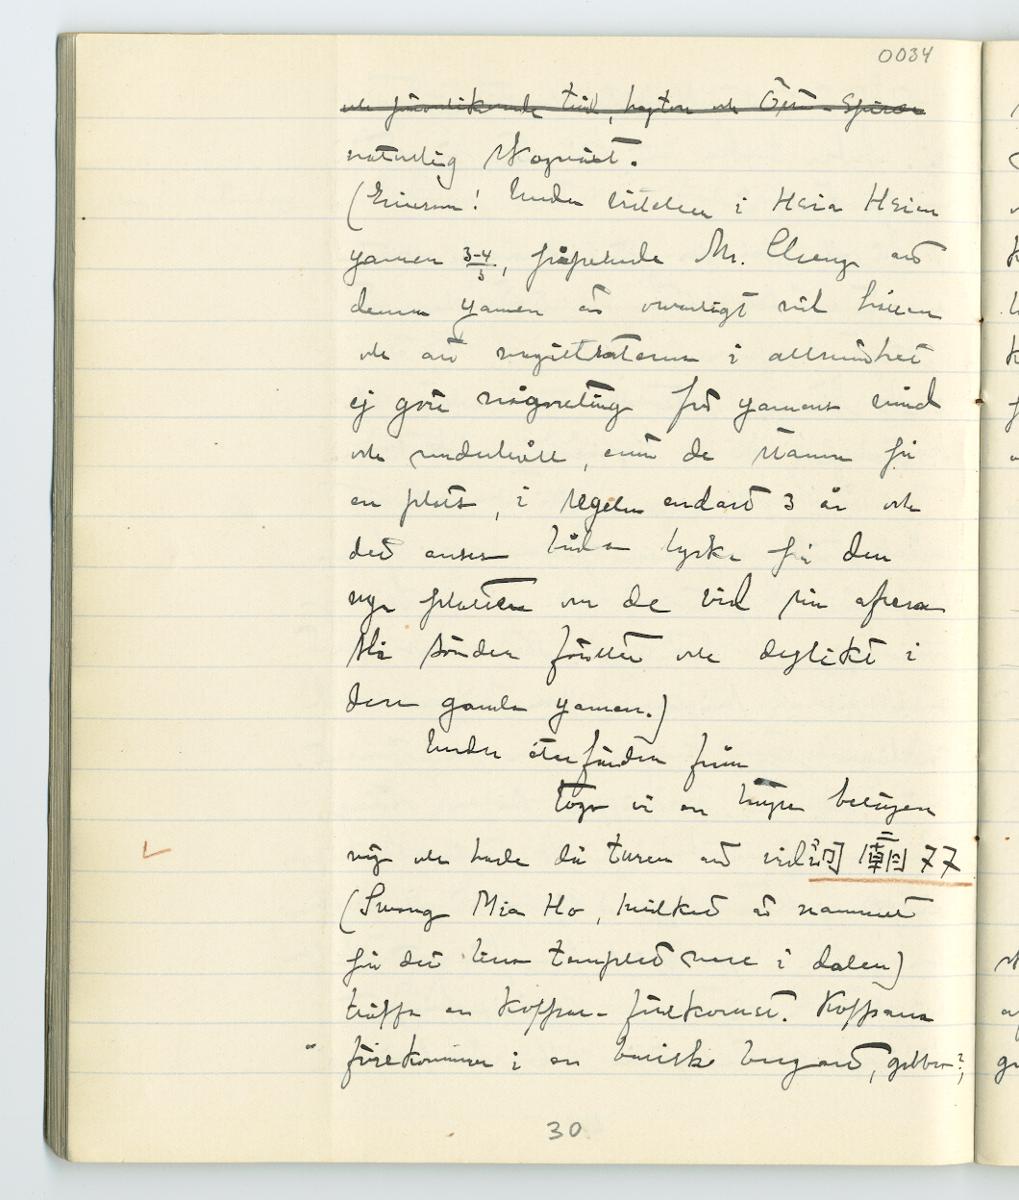 0034
naturlig skogväxt.
(Ericson! Under vistelsen i Hsia Hsien
yamen 3-4/5, påpekade Mr. Cheng att
denna yamen är ovanligt väl hållen
och att magistraterna i allmänhet
ej göra någonting för yamens
och underhåll, emedan de stanna på
en plats, i regeln endast 3 år och
det anses båda lycka för den
nya platsen om de vid sin afresa
slå sönder fönster och dylikt i
den gamla yamen.)
Under återfärden från
togo vi en högre belägen
väg och hade då turen att vid 河 廟 77
(Swang Mia Ho, hvilket är namnet
för det lilla templet nere i dalen)
träffa en kopparförekomst. Kopparn
förekommer i en basisk bergart, gabbro?,
30